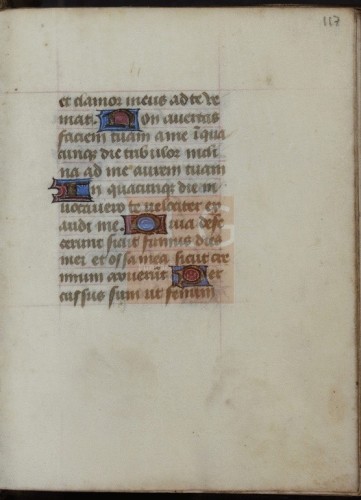 117
et clamor meus ad te ve
niat. Non avertas
faciem tuam a me i qua
cunq; die tribulor incli
na ad me aurem tuam
In quacunq; die in
vocavero te velociter ex
audi me. Quia defe
cerunt sicut fumus dies
mei et ossa mea sicut cre
mium aruerūt Per
cussus sum ut fenum